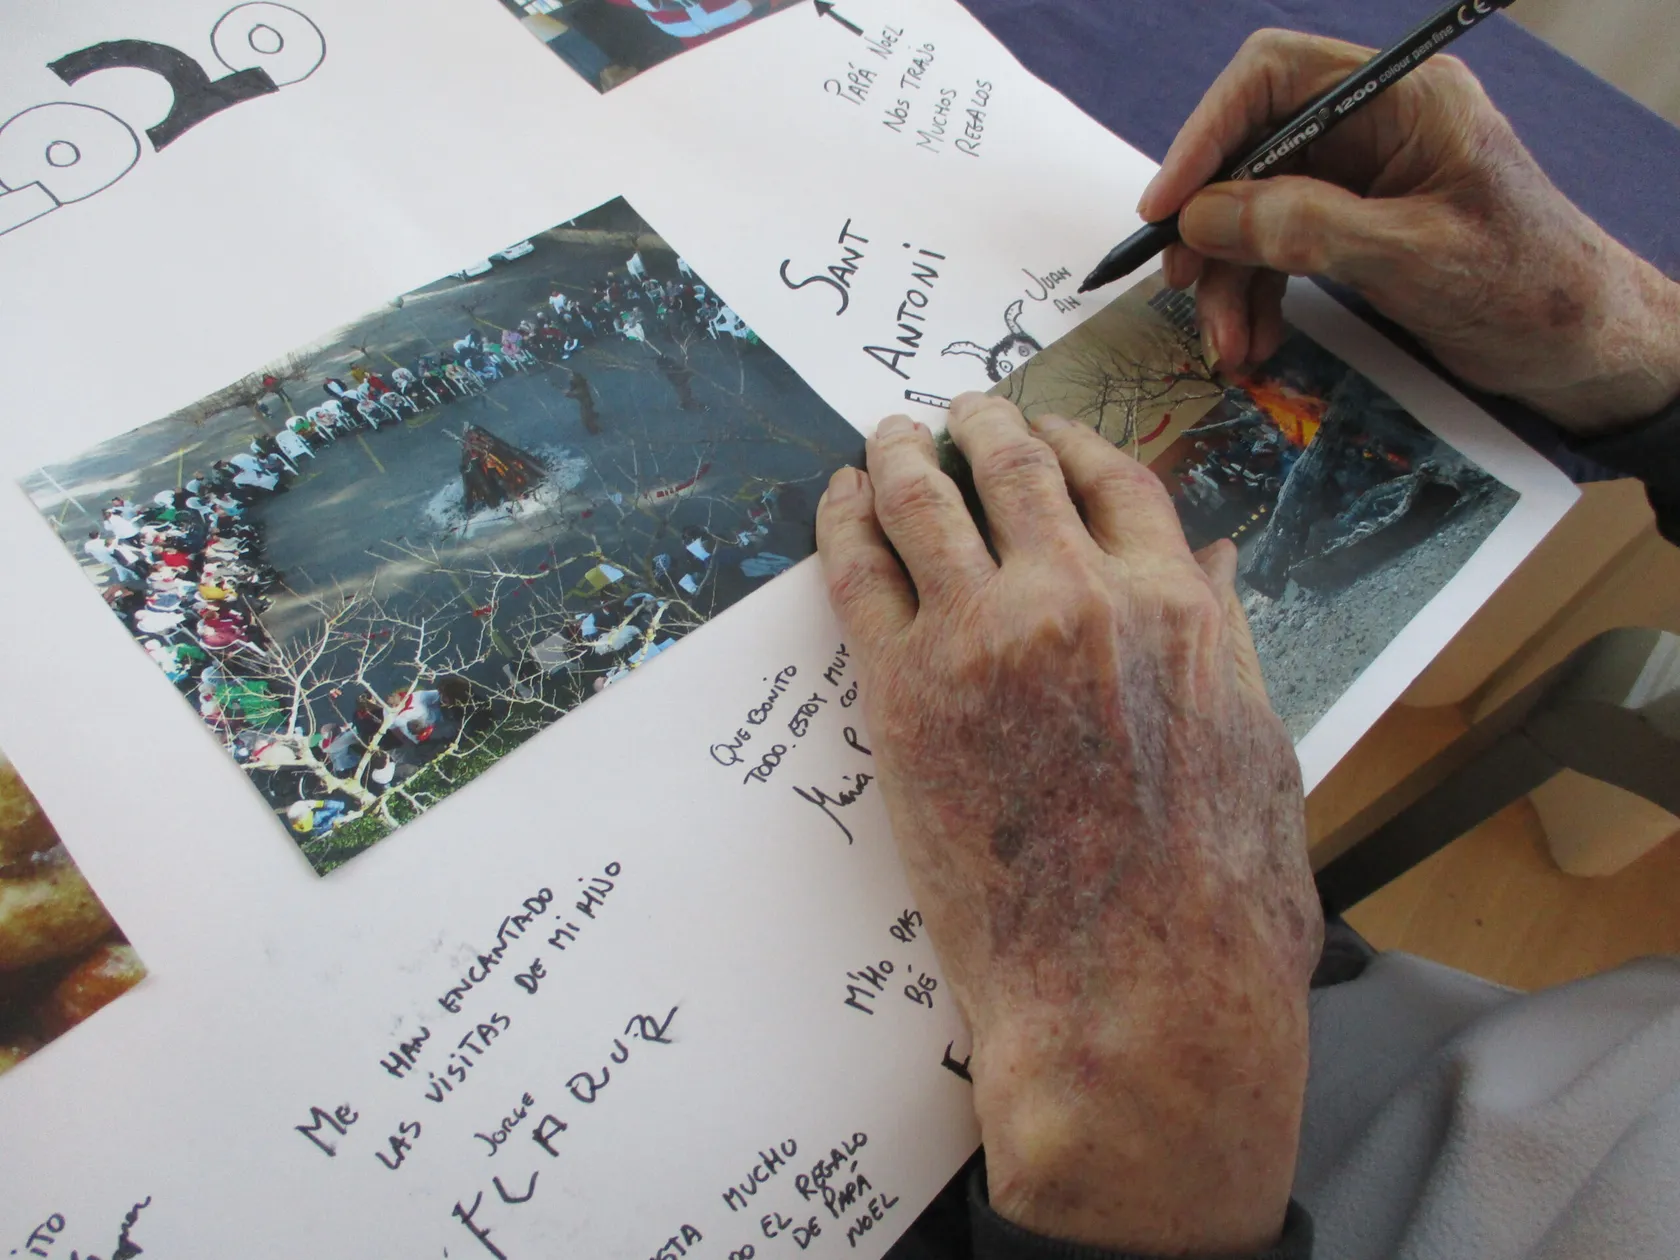 PAPÁ NOEL
NOS TRAJO
MUCHOS
REGALOS
edding 1200 colour pen fine CE
SANT
ANTONI
JUAN
AN
QUE BONITO
TODO. ESTOY MUY
CO
María P
M'HO PAS
BÉ
ME HAN ENCANTADO
LAS VISITAS DE MI HIJO
JORGE
FLAQUER
STA MUCHO
DO EL REGALO
DE PAPÁ
NOEL
ITO